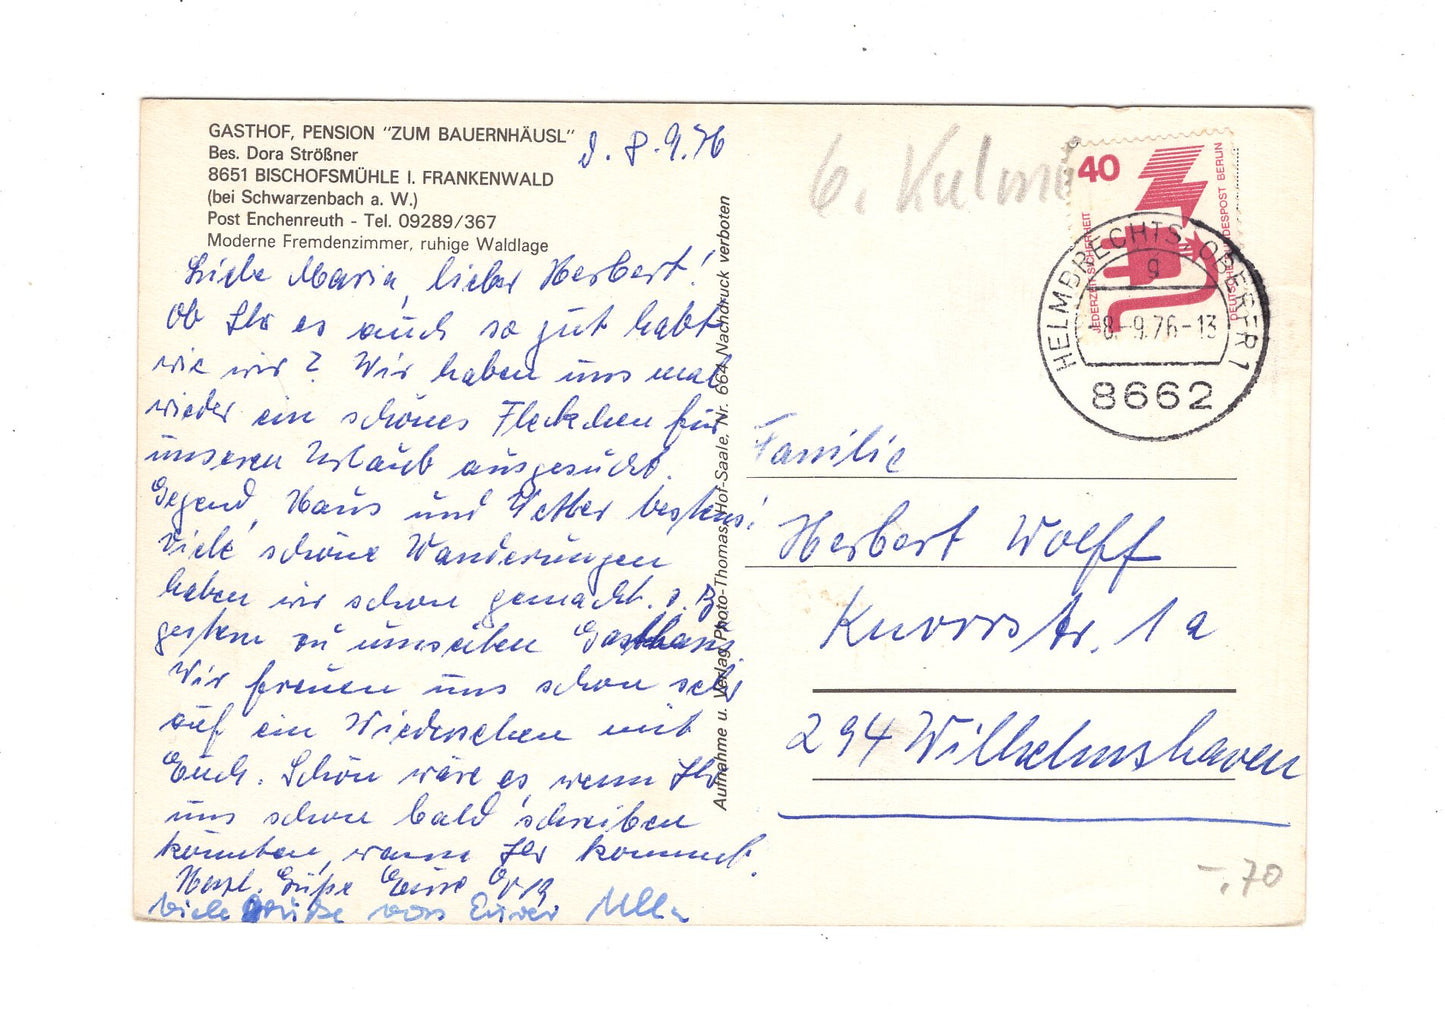 GASTHOF, PENSION "ZUM BAUERNHÄUSL"
Bes. Dora Strößner
8651 BISCHOFSMÜHLE I. FRANKENWALD
(bei Schwarzenbach a. W.)
Post Enchenreuth - Tel. 09289/367
Moderne Fremdenzimmer, ruhige Waldlage
d. 8.9.76
Liebe Maria, lieber Herbert!
Ob Ihr es auch so gut habt
wie wir? Wir haben uns mal
wieder ein schönes Fleckchen für
unseren Urlaub ausgesucht.
Gegend, Haus und Wetter bestens!
Viele schöne Wanderungen
haben wir schon gemacht. z. B.
gestern zu unseiben Gasthaus
Wir freuen uns schon sehr
auf ein Wiedersehen mit
Euch. Schön wäre es, wenn Ihr
uns schon bald schreiben
könnten, wann Ihr kommt.
Herzl. Grüße Eure
Viele Grüße von Eurer Ulla
Aufnahme u. Verlag Photo-Thomas, Hof-Saale, Nr. 664 Nachdruck verboten
6. Kulm
40
JEDERZEIT SICHERHEIT
DEUTSCHE BUNDESPOST BERLIN
HELMBRECHTS, OBERFR 1
g
-8.-9.76-13
8662
Familie
Herbert Wolff
Knorrstr. 1a
294 Wilhelmshaven
-.70